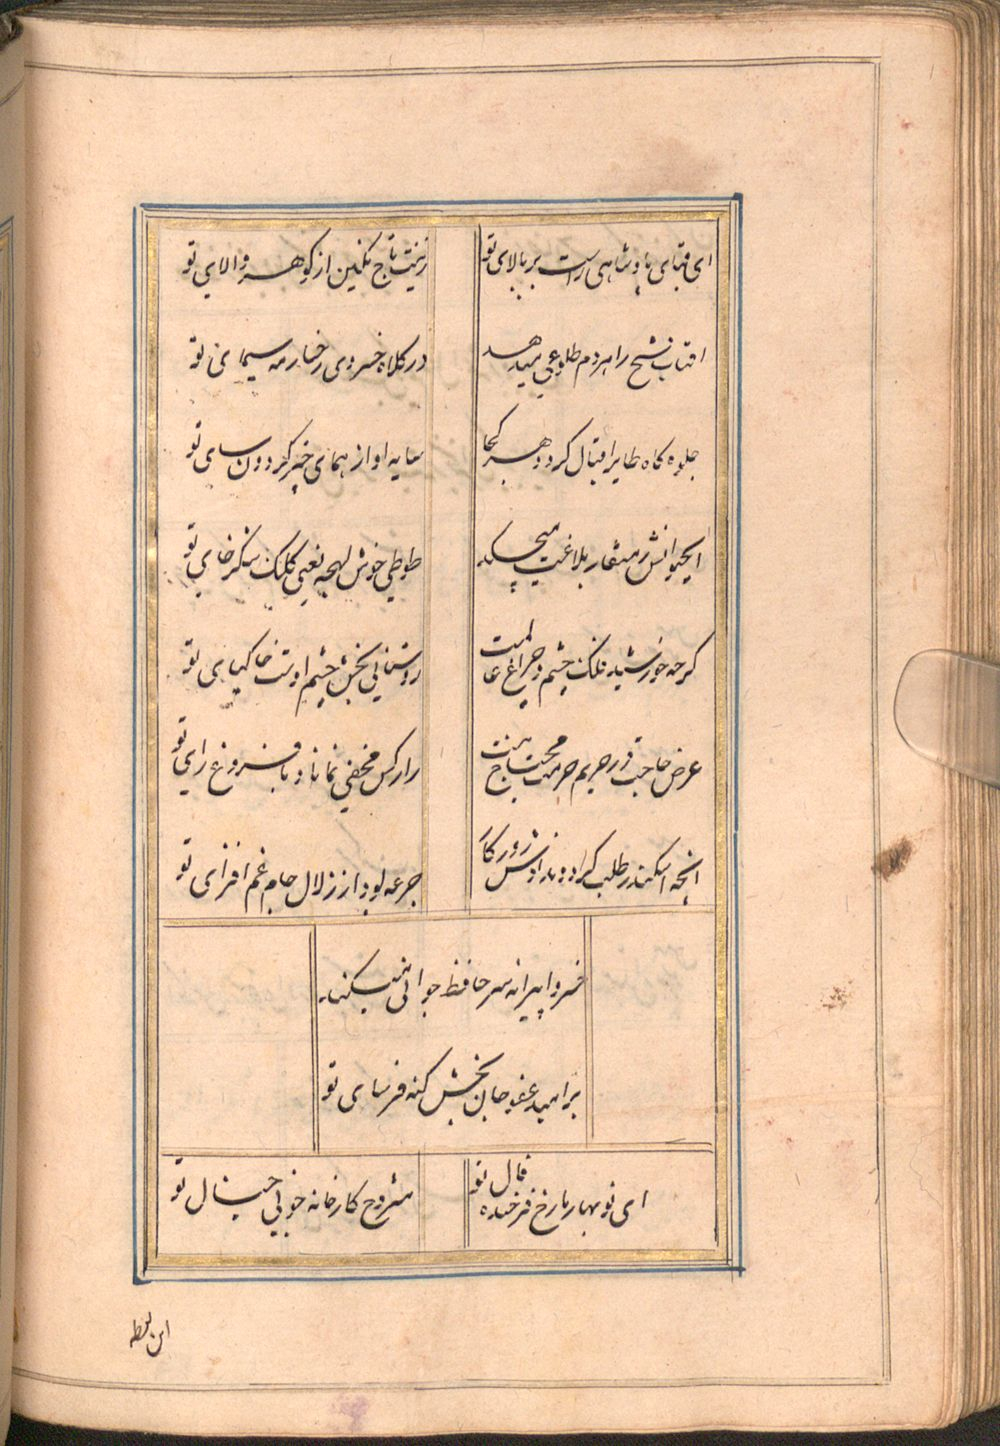 ای قبای پادشاهی راست بر بالای تو
زینت تاج نکین از کوهر والای تو
افتاب فتح را هر دم طلوعی میدهد
در کلاه خسروی رخسار مه سیمای تو
جلوه کاه طایر اقبال کردد هر کجا
سایه اوازد همای چتر کردون سای تو
ابحیوانش ز منقار بلاغت میچکد
طوطی خوش لهجه یعنی کلک شکر خای تو
کرچه خورشید فلک چشم و چراغ عالمست
روشنائی بخش چشم اوست خاکپای تو
عرض حاجت در حریم حرمتت محتاج نیست
راز کس مخفی نماند با فروغ رای تو
انچه اسکندر طلب کرد و ندادش روزکار
جرعه بود از زلال جام غم افزای تو
خسروا پیرانه سر حافظ جوانی میکند
بر امید عفو جان بخش کنه فرسای تو
ای نوبهار ما رخ فرخنده فال تو
مشروح کارخانه خوبی جمال تو
این نقطه